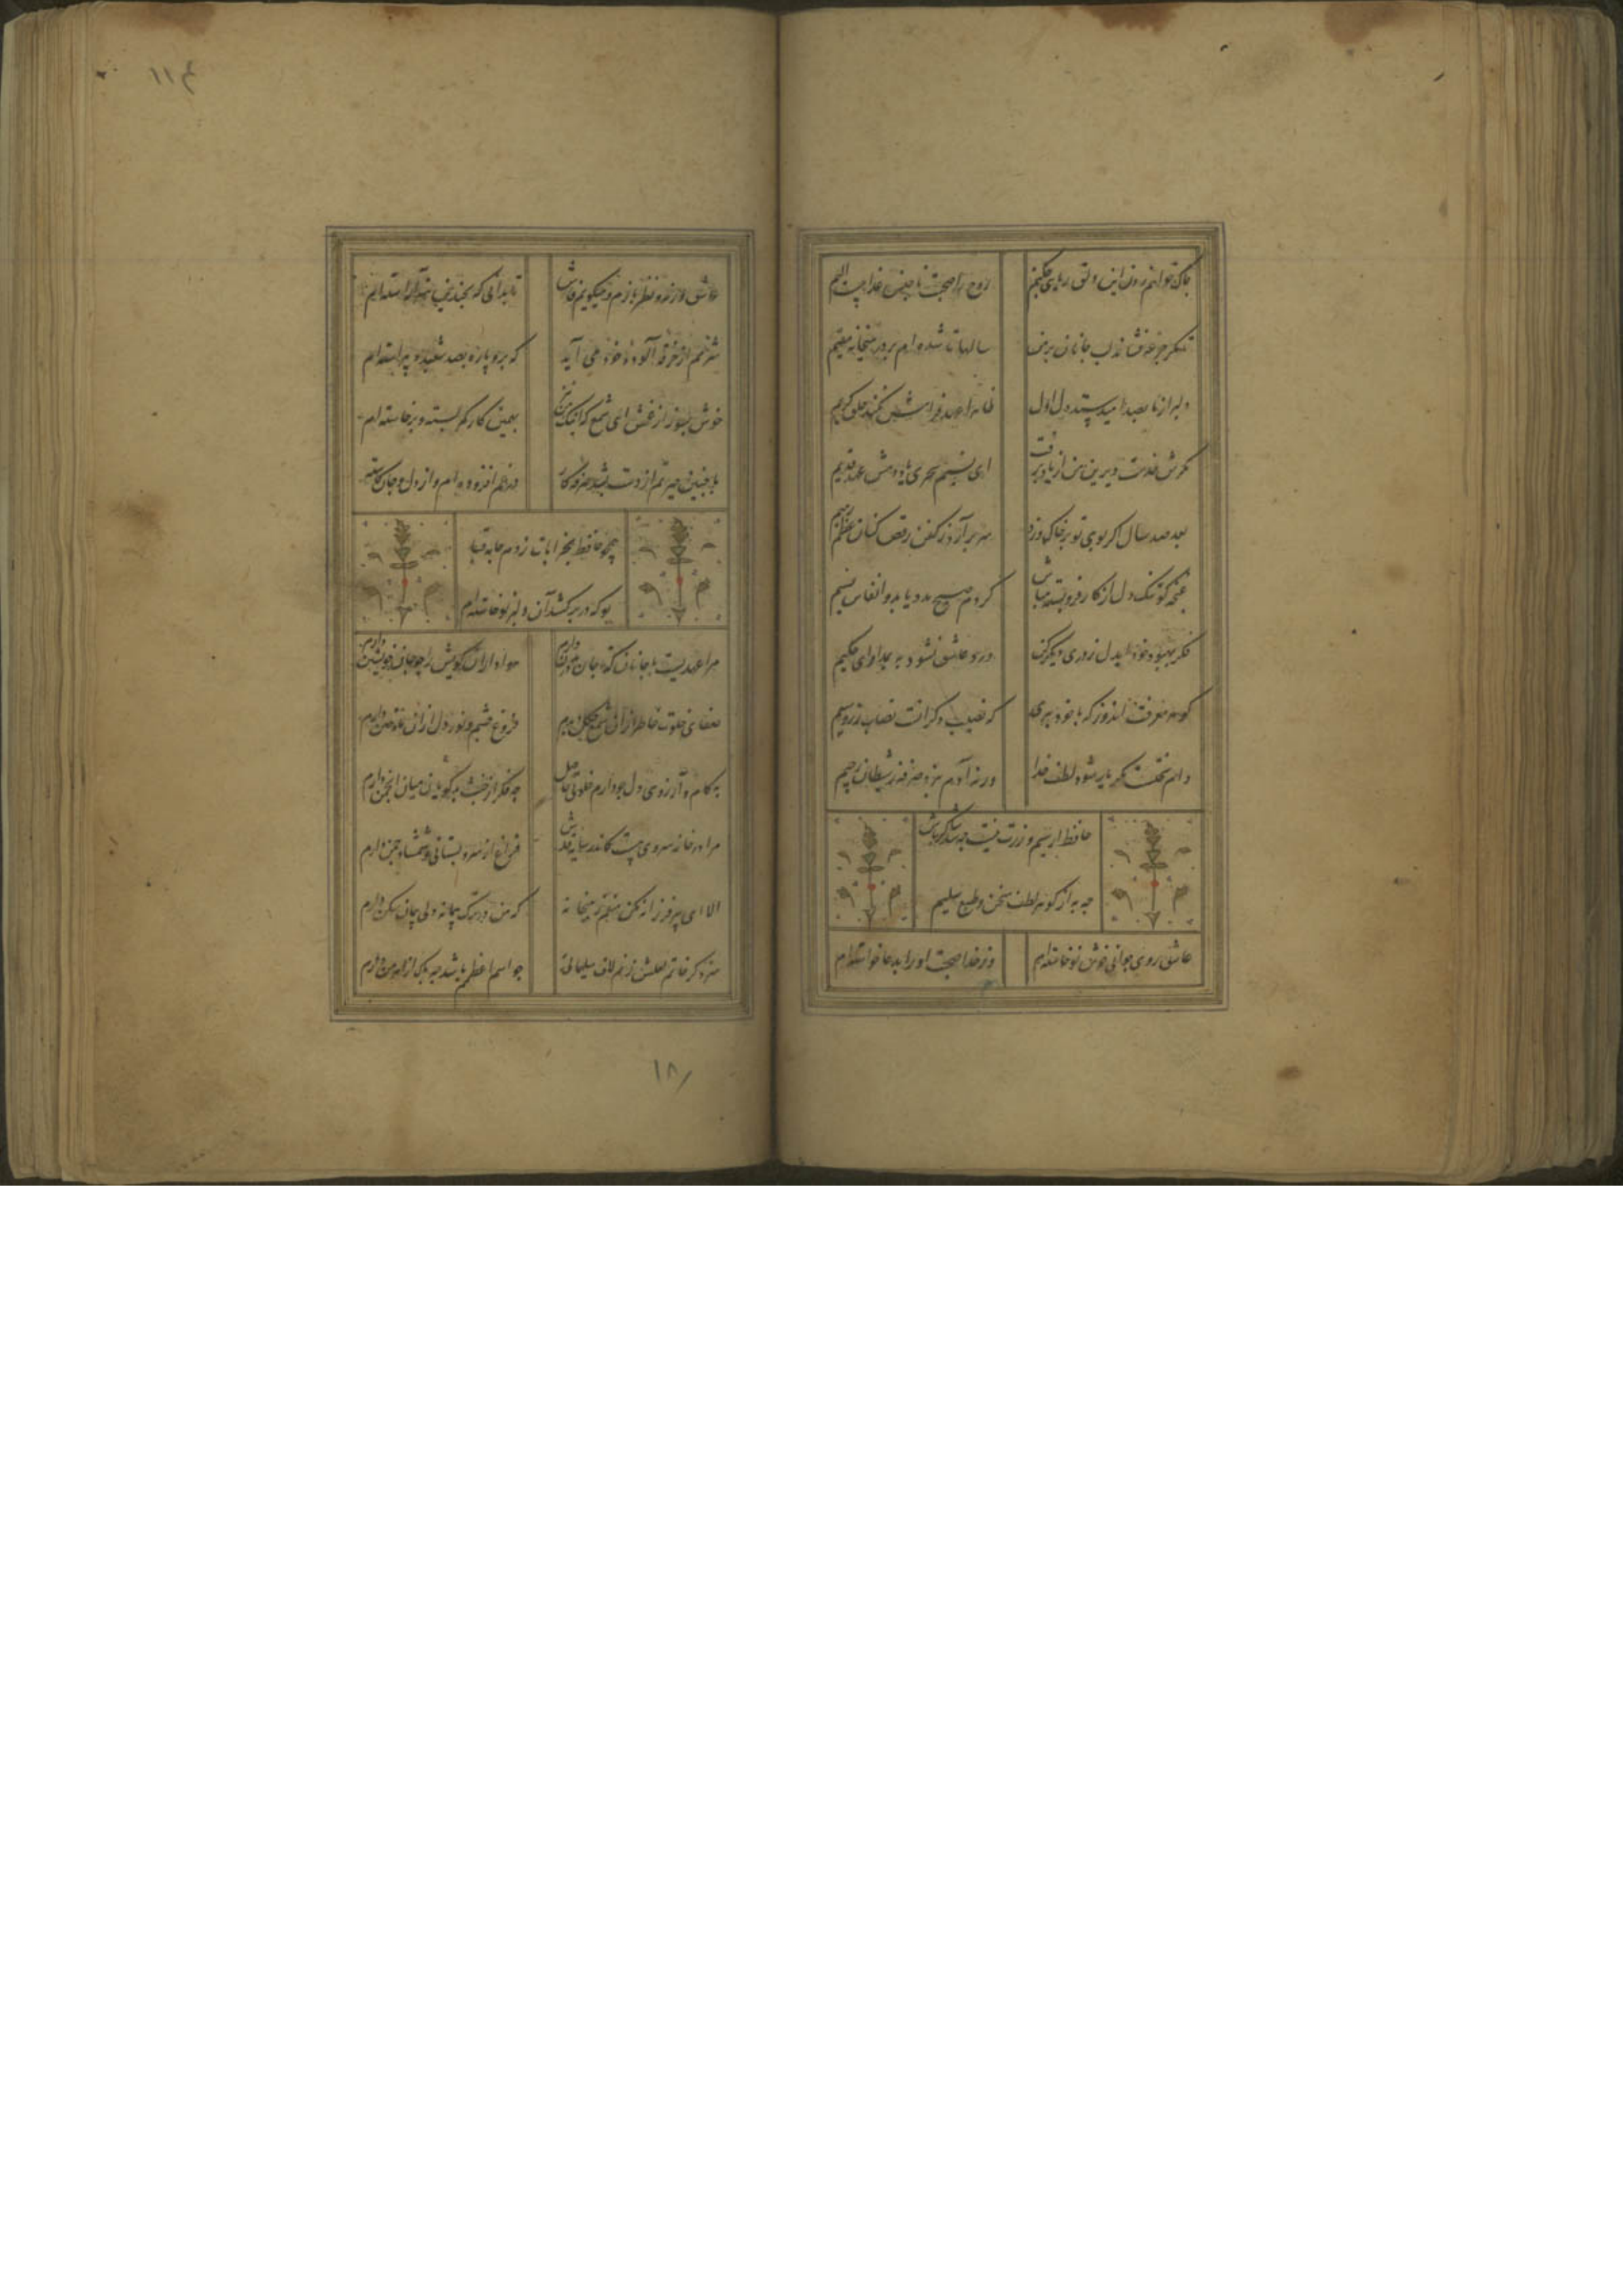 چاک خواهم زدن این دلق ریایی چکنم
روح را صحبت ناجنس عذابیست الیم
تا مگر جرعه فشاند لب جانان بر من
سالها تا شده‌ام بر در میخانه مقیم
دلبر از ما بصد امید ستد دل اول
ظاهرا عهد فرامش نکند خلق کریم
مگرش خدمت دیرین من از یاد برفت
ای نسیم سحری یاد دهش عهد قدیم
بعد صد سال اگر بوی تو بر خاک وزد
سر برآرد ز کفن رقص کنان عظم رمیم
غنچه گو تنگ دل از کار فروبسته مباش
کز دم صبح مدد یابد و انفاس نسیم
فکر بهبود خود ایدل ز دری دیگر کن
درد عاشق نشود به بمداوای حکیم
گوهر معرفت اندوز که با خود ببری
که نصیب دگرانست نصاب زر و سیم
دام سختست مگر یار شود لطف خدا
ورنه آدم نبرد صرفه ز شیطان رجیم
حافظ ار سیم و زرت نیست چه شد شاکر باش
چه به از گوهر لطف سخن و طبع سلیم
عاشق روی جوانی خوش نوخاسته‌ام
وز خدا صحبت او را بدعا خواسته‌ام
۱۱۴
عاشق و رند و نظربازم و میگویم فاش
تا بدانی که بچندین هنر آراسته‌ام
شرمم از خرقه آلوده خود می آید
که برو پاره بصد شعبده پیراسته‌ام
خوش بسوز از غمش ای شمع که اینک من نیز
بهمین کار کمر بسته و برخاسته‌ام
با چنین حیرتم از دست بشد صرفه کار
در غم افزوده‌ام و از دل و جان کاسته‌ام
همچو حافظ بخرابات روم جامه قبا
بو که در بر کشد آن دلبر نوخاسته‌ام
مرا عهدیست با جانان که تا جان در بدن دارم
هواداران کویش را چو جان خویشتن دارم
صفای خلوت خاطر از ان شمع چگل دارم
فروغ چشم و نور دل از ان ماه ختن دارم
به کام و آرزوی دل چو دارم خلوتی حاصل
چه فکر از خبث بدگویان میان انجمن دارم
مرا در خانه سروی هست کاندر سایه قدش
فراغ از سرو بستانی و شمشاد چمن دارم
الا ای پیر فرزانه مکن منعم ز میخانه
که من در ترک پیمانه دلی پیمان شکن دارم
سزد کز خاتم لعلش زنم لاف سلیمانی
چو اسم اعظم باشد چه باک از اهرمن دارم
۱۸